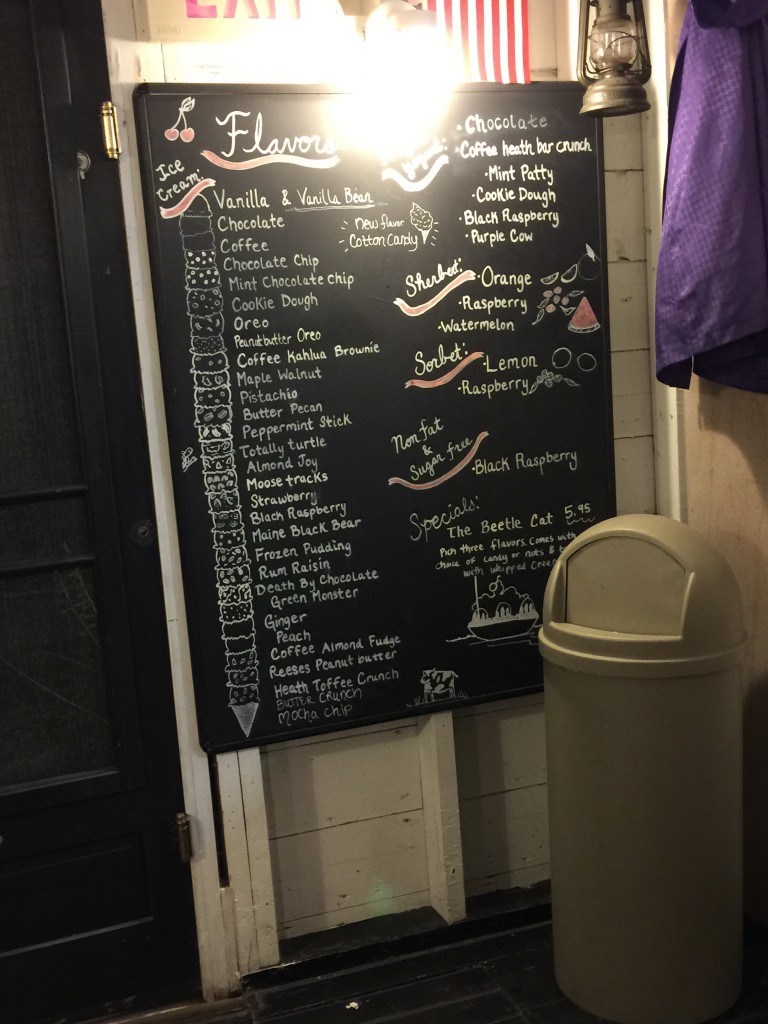 EXIT
Flavors
Ice
Cream:
Vanilla & Vanilla Bean
Chocolate
Coffee
Chocolate Chip
Mint Chocolate Chip
Cookie Dough
Oreo
Peanutbutter Oreo
Coffee Kahlua Brownie
Maple Walnut
Pistachio
Butter Pecan
Peppermint Stick
Totally turtle
Almond Joy
Moose tracks
Strawberry
Black Raspberry
Maine Black Bear
Frozen Pudding
Rum Raisin
Death By Chocolate
Green Monster
Ginger
Peach
Coffee Almond Fudge
Reeses Peanut butter
Heath Toffee Crunch
BUTTER CRUNCH
MOCHA CHIP
New flavor
Cotton Candy
Yogurt:
·Chocolate
·Coffee heath bar crunch
·Mint Patty
·Cookie Dough
·Black Raspberry
·Purple Cow
Sherbert:
·Orange
·Raspberry
·Watermelon
Sorbet:
·Lemon
·Raspberry
Non fat
&
Sugar free
·Black Raspberry
Specials:
The Beetle Cat 5.95
Pick three flavors. Comes with
choice of candy or nuts &
with whipped Cream